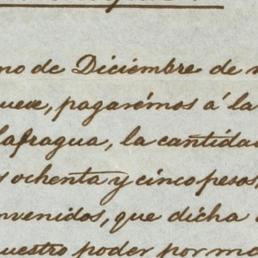 mo de Diciembre de
ueve, pagarémos á la
lafragua, la cantida
s ochenta y cinco pesos
nvenidos, que dicha
uestro poder por